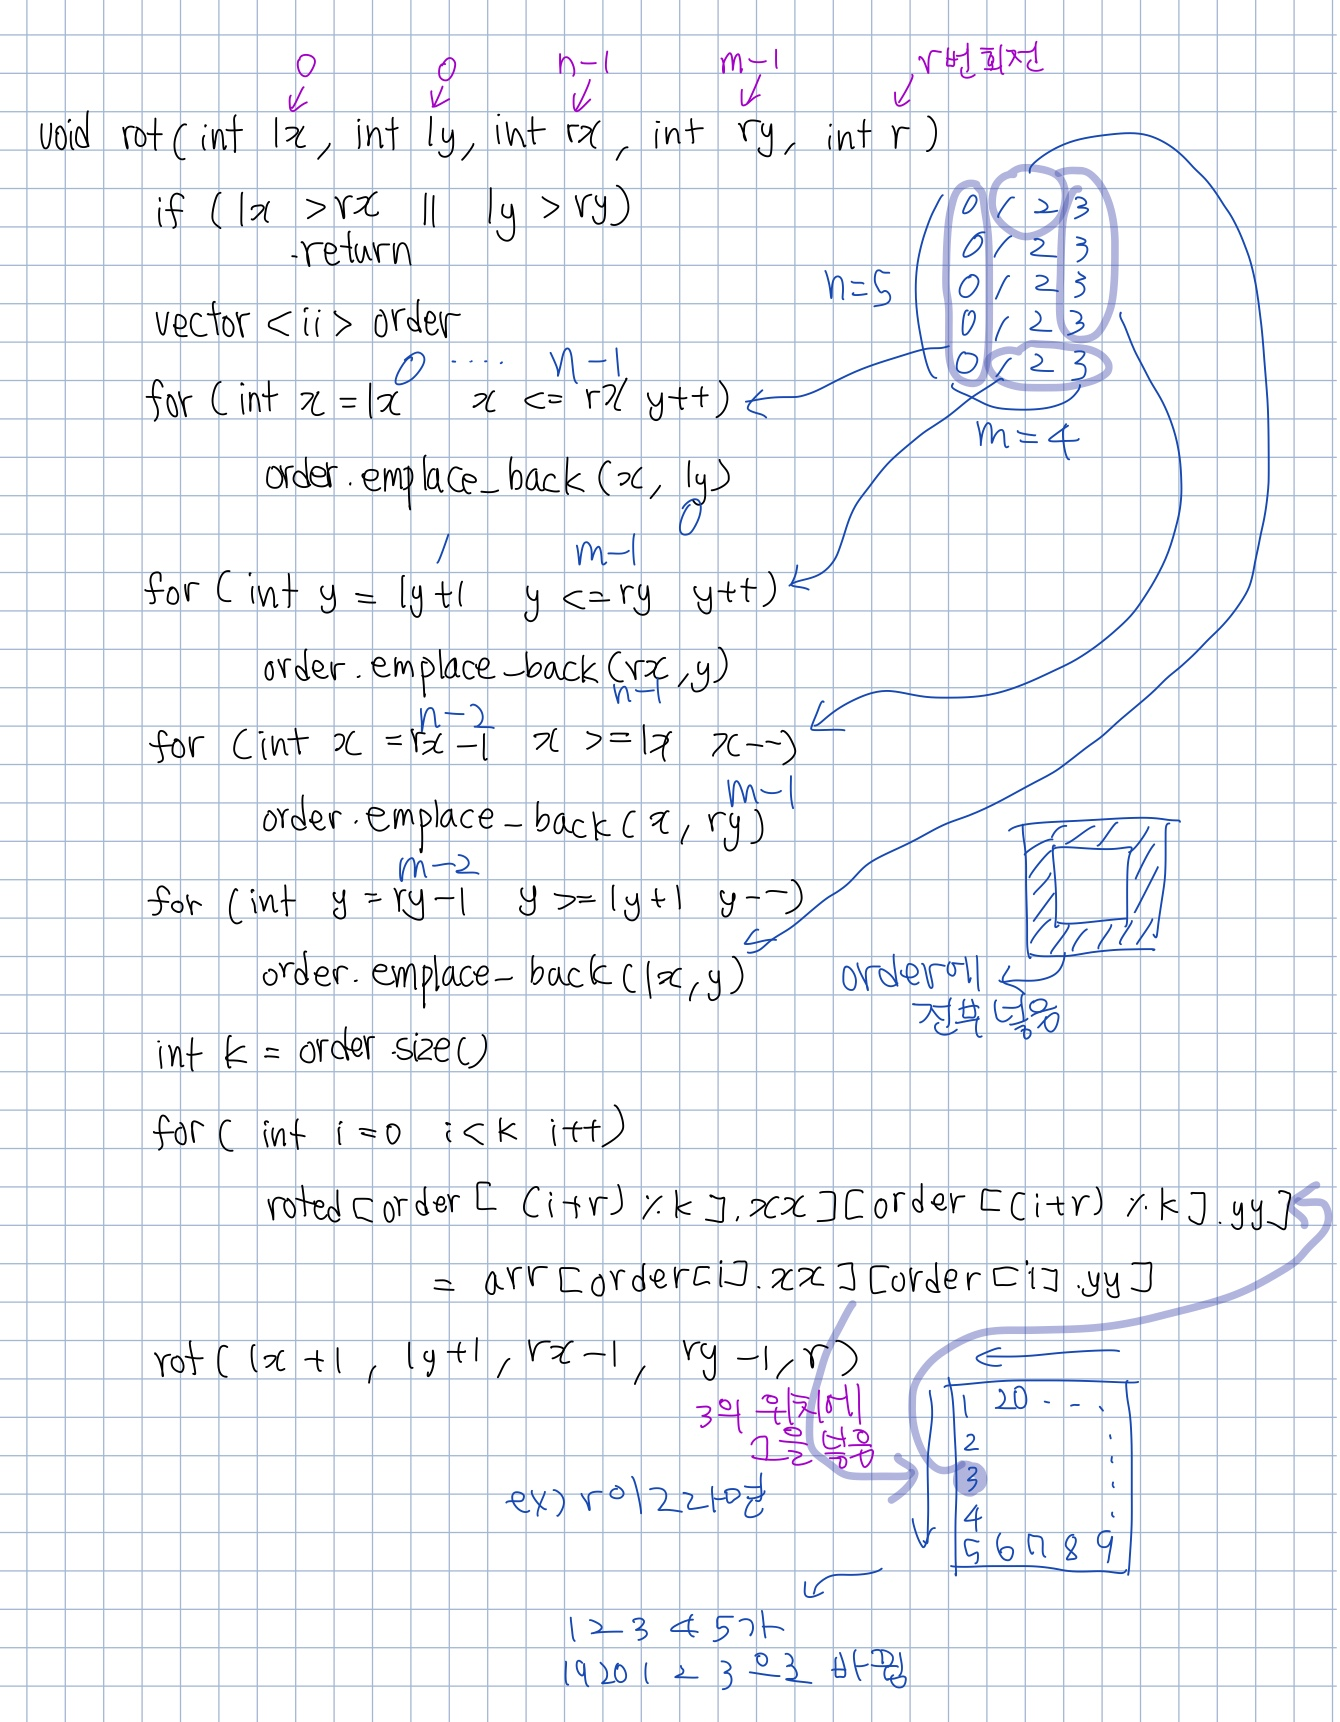 0 0 n-1 m-1 r번 회전
void rot( int lx, int ly, int rx, int ry, int r )
if ( lx > rx || ly > ry)
return
vector <ii> order
0 1 2 3
0 1 2 3
0 1 2 3
0 1 2 3
0 1 2 3
n=5
m=4
0 .... n-1
for ( int x = lx x <= rx y++)
order.emplace_back (x, ly)
0
1 m-1
for ( int y = ly+1 y <= ry y++)
order.emplace_back (rx, y)
n-1
n-2
for (int x = rx -1 x >= lx x--)
m-1
order.emplace_back ( x, ry)
m-2
for (int y = ry-1 y >= ly+1 y--)
order.emplace_back (lx, y)
order에
전부 넣음
int k = order.size()
for ( int i=0 i<k i++)
roted[order[ (i+r) %k ].xx][order[(i+r) %k].yy]
= arr[order[i].xx][order[i].yy]
rot( lx +1, ly+1, rx-1, ry-1, r)
3의 위치에
그을 넣음
ex) r이 2라면
1 20 . . .
2
3
4
5 6 7 8 9
1 2 3 4 5가
19 20 1 2 3 으로 바뀜